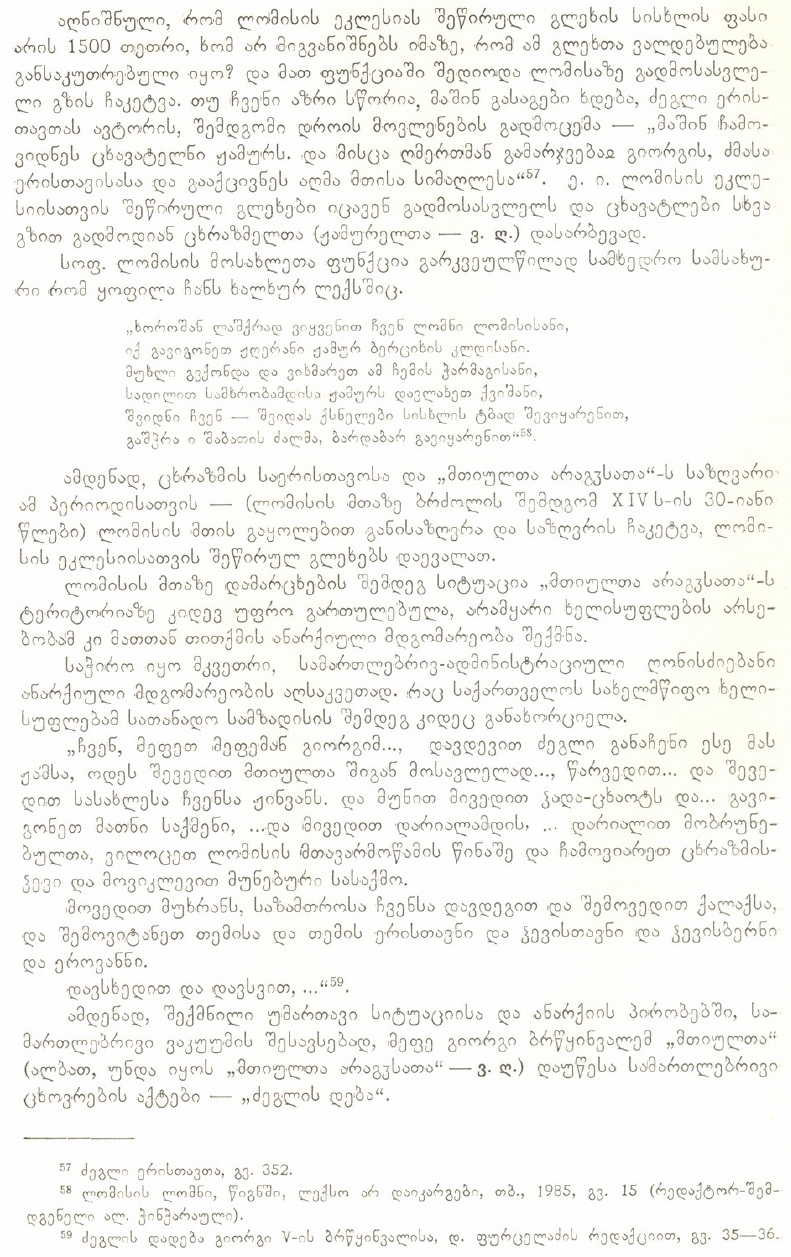 აღნიშნული, რომ ლომისის ეკლესიას შეწირული გლეხის სისხლის ფასი
არის 1500 თეთრი, ხომ არ მიგვანიშნებს იმაზე, რომ ამ გლეხთა ვალდებულება
განსაკუთრებული იყო? და მათ ფუნქციაში შედიოდა ლომისაზე გადმოსასვლე-
ლი გზის ჩაკეტვა. თუ ჩვენი აზრი სწორია, მაშინ გასაგები ხდება, ძეგლი ერის-
თავთას ავტორის, შემდგომი დროის მოვლენების გადმოცემა — „მაშინ ჩამო-
ვიდნეს ცხავატელნი ჟამურს. და მისცა ღმერთმან გამარჯვებაჲ გიორგის, ძმასა
ერისთავისასა და გააქცივნეს აღმა მთისა სიმაღლესა“⁵⁷. ე. ი. ლომისის ეკლე-
სიისათვის შეწირული გლეხები იცავენ გადმოსასვლელს და ცხავატლები სხვა
გზით გადმოდიან ცხრაზმელთა (ჟამურელთა — ვ. ღ.) დასარბევად.
სოფ. ლომისის მოსახლეთა ფუნქცია გარკვეულწილად სამხედრო სამსახუ-
რი რომ ყოფილა ჩანს ხალხურ ლექსშიც.
„ხოროშან ლაშქრად ვიყვენით ჩვენ ლომნი ლომისისანი,
იქ გავიგონეთ ჟღერანი ჟამურ ბერციხის კლდისანი.
მუხლი გვქონდა და ვიხმარეთ ამ ჩემის ჭარმაგისანი,
სადილით სამხრობამდისა ჟამურს დავლახეთ ქვიშანი,
შვიდნი ჩვენ — შვიდას ქსნელები სისხლის ტბად შევიყარენით,
გაშჭრა ი შაბათის ძალმა, ბარდაბარ გავიყარენით“⁵⁸.
ამდენად, ცხრაზმის საერისთავოსა და „მთიულთა არაგჳსათა“-ს საზღვარი
ამ პერიოდისათვის — (ლომისის მთაზე ბრძოლის შემდგომ XIV ს-ის 30-იანი
წლები) ლომისის მთის გაყოლებით განისაზღვრა და საზღვრის ჩაკეტვა, ლომი-
სის ეკლესიისათვის შეწირულ გლეხებს დაევალათ.
ლომისის მთაზე დამარცხების შემდეგ სიტუაცია „მთიულთა არაგჳსათა“-ს
ტერიტორიაზე კიდევ უფრო გართულებულა, არამყარი ხელისუფლების არსე-
ბობამ კი მათთან თითქმის ანარქიული მდგომარეობა შექმნა.
საჭირო იყო მკვეთრი, სამართლებრივ-ადმინისტრაციული ღონისძიებანი
ანარქიული მდგომარეობის აღსაკვეთად. რაც საქართველოს სახელმწიფო ხელი-
სუფლებამ სათანადო სამზადისის შემდეგ კიდეც განახორციელა.
„ჩვენ, მეფეთ მეფემან გიორგიმ..., დავდევით ძეგლი განაჩენი ესე მას
ჟამსა, ოდეს შევედით მთიულთა შიგან მოსავლელად..., წარვედით... და შევე-
დით სასახლესა ჩვენსა ჟინვანს. და მუნით მივედით ჴადა-ცხაოტს და... გავი-
გონეთ მათნი საქმენი, ...და მივედით დარიალამდის, ... დარიალით მობრუნე-
ბულთა, ვილოცეთ ლომისის მთავარმოწამის წინაშე და ჩამოვიარეთ ცხრაზმის-
ჴევი და მოვიკლევით მუნებური სასაქმო.
მოვედით მუხრანს, საზამთროსა ჩვენსა დავდეგით და შემოვედით ქალაქსა,
და შემოვიტანეთ თემისა და თემის ერისთავნი და ჴევისთავნი და ჴევისბერნი
და ეროვანნი.
დავსხედით და დავსვით, ...“⁵⁹.
ამდენად, შექმნილი უმართავი სიტუაციისა და ანარქიის პირობებში, სა-
მართლებრივი ვაკუუმის შესავსებად, მეფე გიორგი ბრწყინვალემ „მთიულთა“
(ალბათ, უნდა იყოს „მთიულთა არაგჳსათა“ — ვ. ღ.) დაუწესა სამართლებრივი
ცხოვრების აქტები — „ძეგლის დება“.
⁵⁷ ძეგლი ერისთავთა, გვ. 352.
⁵⁸ ლომისის ლომნი, წიგნში, ლექსო არ დაიკარგები, თბ., 1985, გვ. 15 (რედაქტორ-შემ-
დგენელი ალ. ჭინჭარაული).
⁵⁹ ძეგლის დადება გიორგი V-ის ბრწყინვალისა, დ. ფურცელაძის რედაქციით, გვ. 35—36.